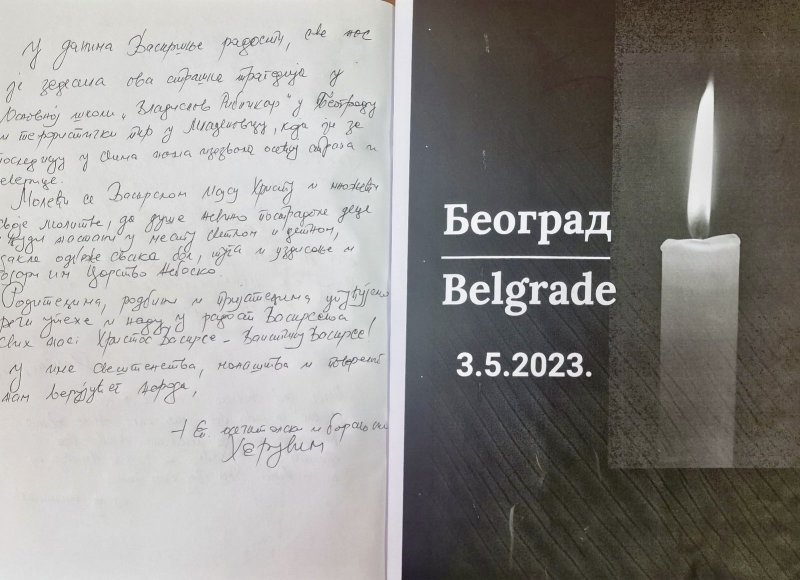 У данима Васкршње радости, све нас
је задесила ова страшна трагедија у
Основној школи „Владислав Рибникар" у Београду
и терористички чин у Младеновцу, која је за
последицу у свима нама изазвала осећај страха и
неверице.
Молећи се Васкрслом Исусу Христу и
своје молитве, да душе невино пострадале деце
и људи настани у месту светлом и
одакле одбеже свака бол, туга и уздисање и
подари им Царство Небеско.
Родитељима, родбини и пријатељима
речи утехе и наду у радост Васкрсења
свих нас: Христос Васкрсе – Ваистину Васкрсе!
У име свештенства, монаштва и
нам верујућег народа,
+ Еп. осечкопољски и барањски
Херувим
Београд
Belgrade
3.5.2023.